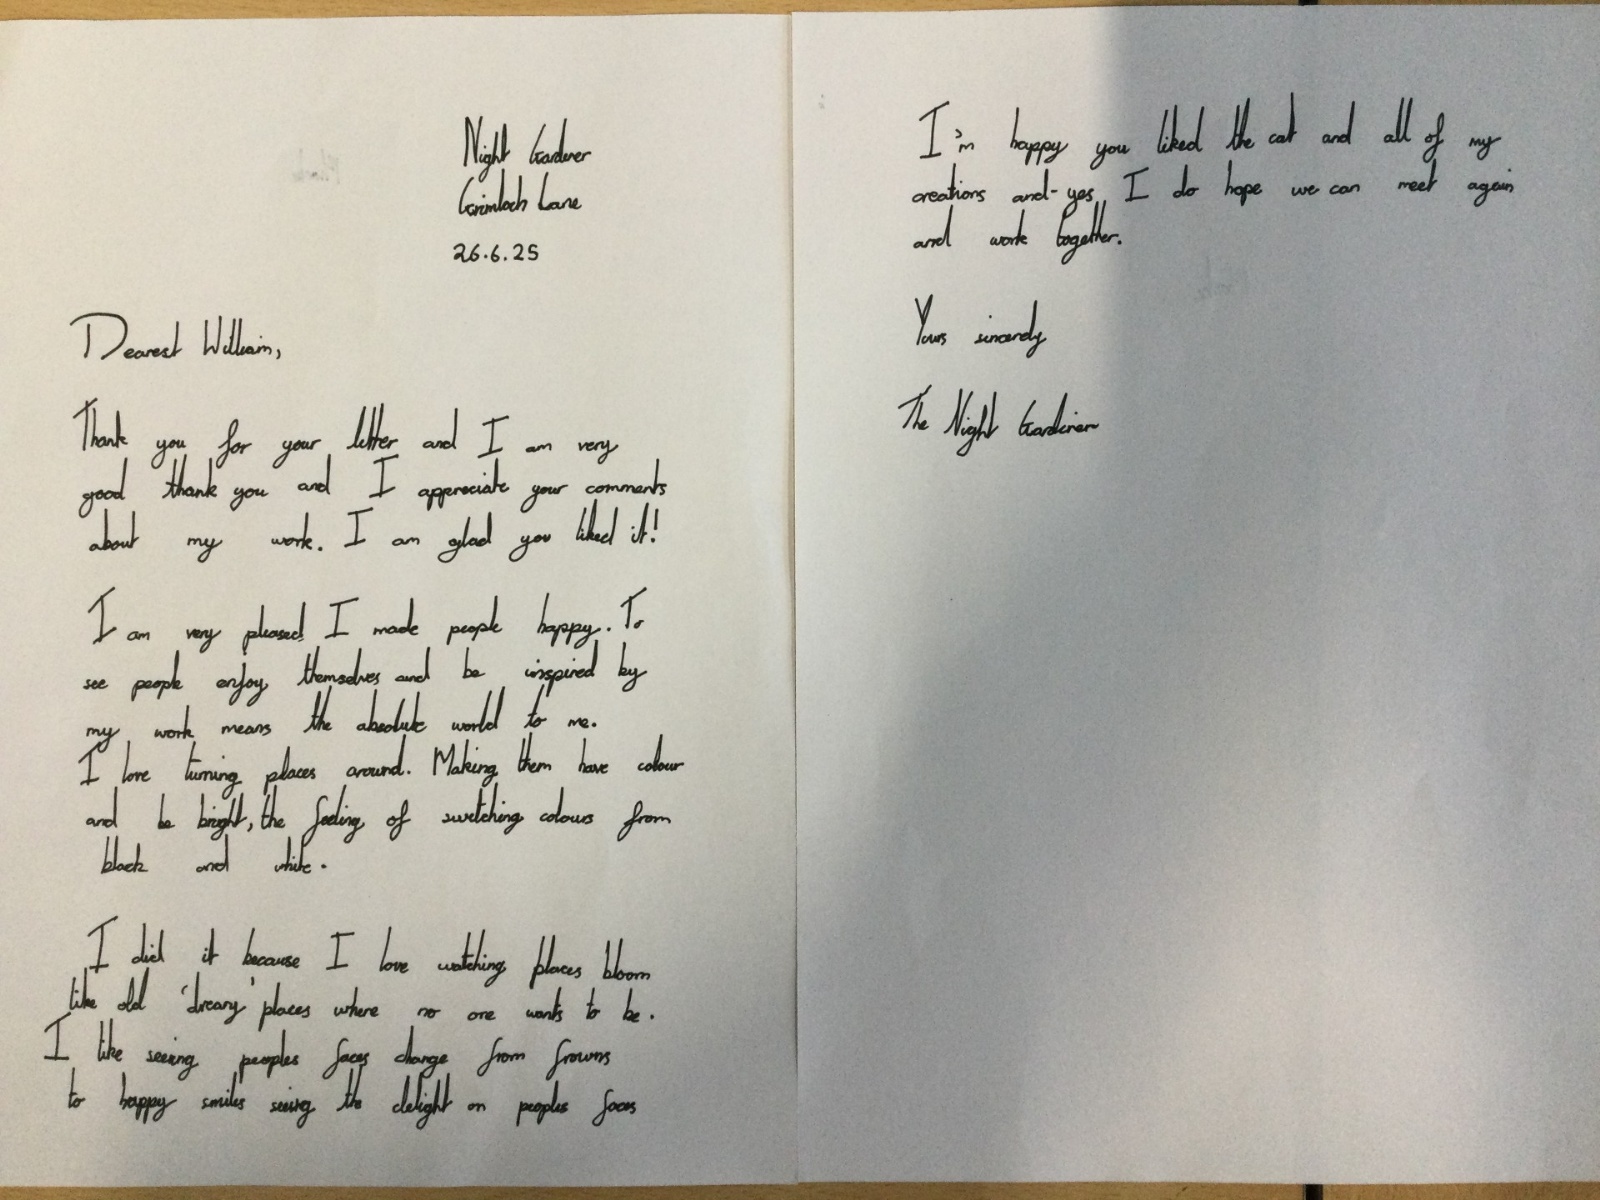 Night Gardener
Grimloch Lane
26.6.25
Dearest William,
Thank you for your letter and I am very
good thank you and I appreciate your comments
about my work. I am glad you liked it!
I am very pleased I made people happy. To
see people enjoy themselves and be inspired by
my work means the absolute world to me.
I love turning places around. Making them have colour
and be bright, the feeling of switching colours from
black and white.
I did it because I love watching places bloom
like old 'dreary' places where no one wants to be.
I like seeing peoples faces change from frowns
to happy smiles seeing the delight on peoples faces
I'm happy you liked the cat and all of my
creations and-yes I do hope we can meet again
and work together.
Yours sincerely
The Night Gardener